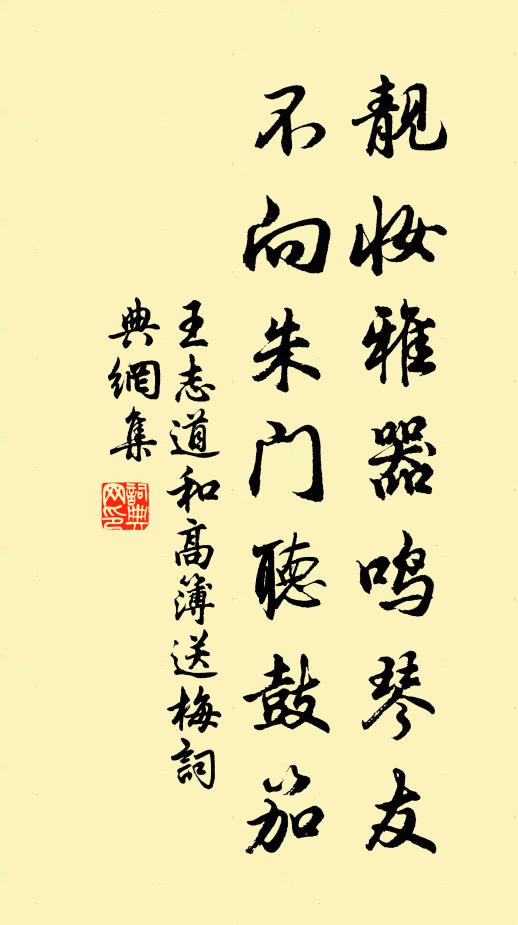 靚妝雅器鸣琴友
不向朱门聽鼓笳
王志道和高簿送梅詞
典網集
詞典网印